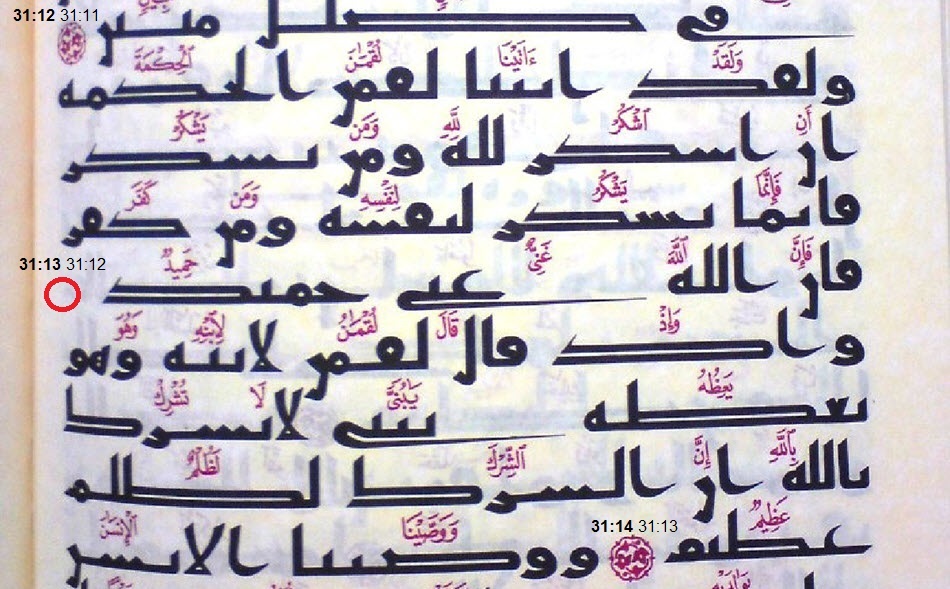 31:12 31:11
فى ضلل مبين
وَلَقَدْ ءَاتَيْنَا لُقْمَٰنَ ٱلْحِكْمَةَ
ولقد اتينا لقمن الحكمه
أَنِ ٱشْكُرْ لِلَّهِ وَمَن يَشْكُرْ
ان اشكر لله ومن يشكر
فَإِنَّمَا يَشْكُرُ لِنَفْسِهِ وَمَن كَفَرَ
فانما يشكر لنفسه ومن كفر
فَإِنَّ ٱللَّهَ غَنِىٌّ حَمِيدٌ
31:13 31:12
فان الله غنى حميد
وَإِذْ قَالَ لُقْمَٰنُ لِٱبْنِهِ وَهُوَ
واذ قال لقمن لابنه وهو
يَعِظُهُ يَٰبُنَىَّ لَا تُشْرِكْ
يعظه يبنى لا تشرك
بِٱللَّهِ إِنَّ ٱلشِّرْكَ لَظُلْمٌ
بالله ان الشرك لظلم
عَظِيمٌ 31:14 31:13 وَوَصَّيْنَا ٱلْإِنسَٰنَ
عظيم ووصينا الانسن
بِوَٰلِدَيْهِ